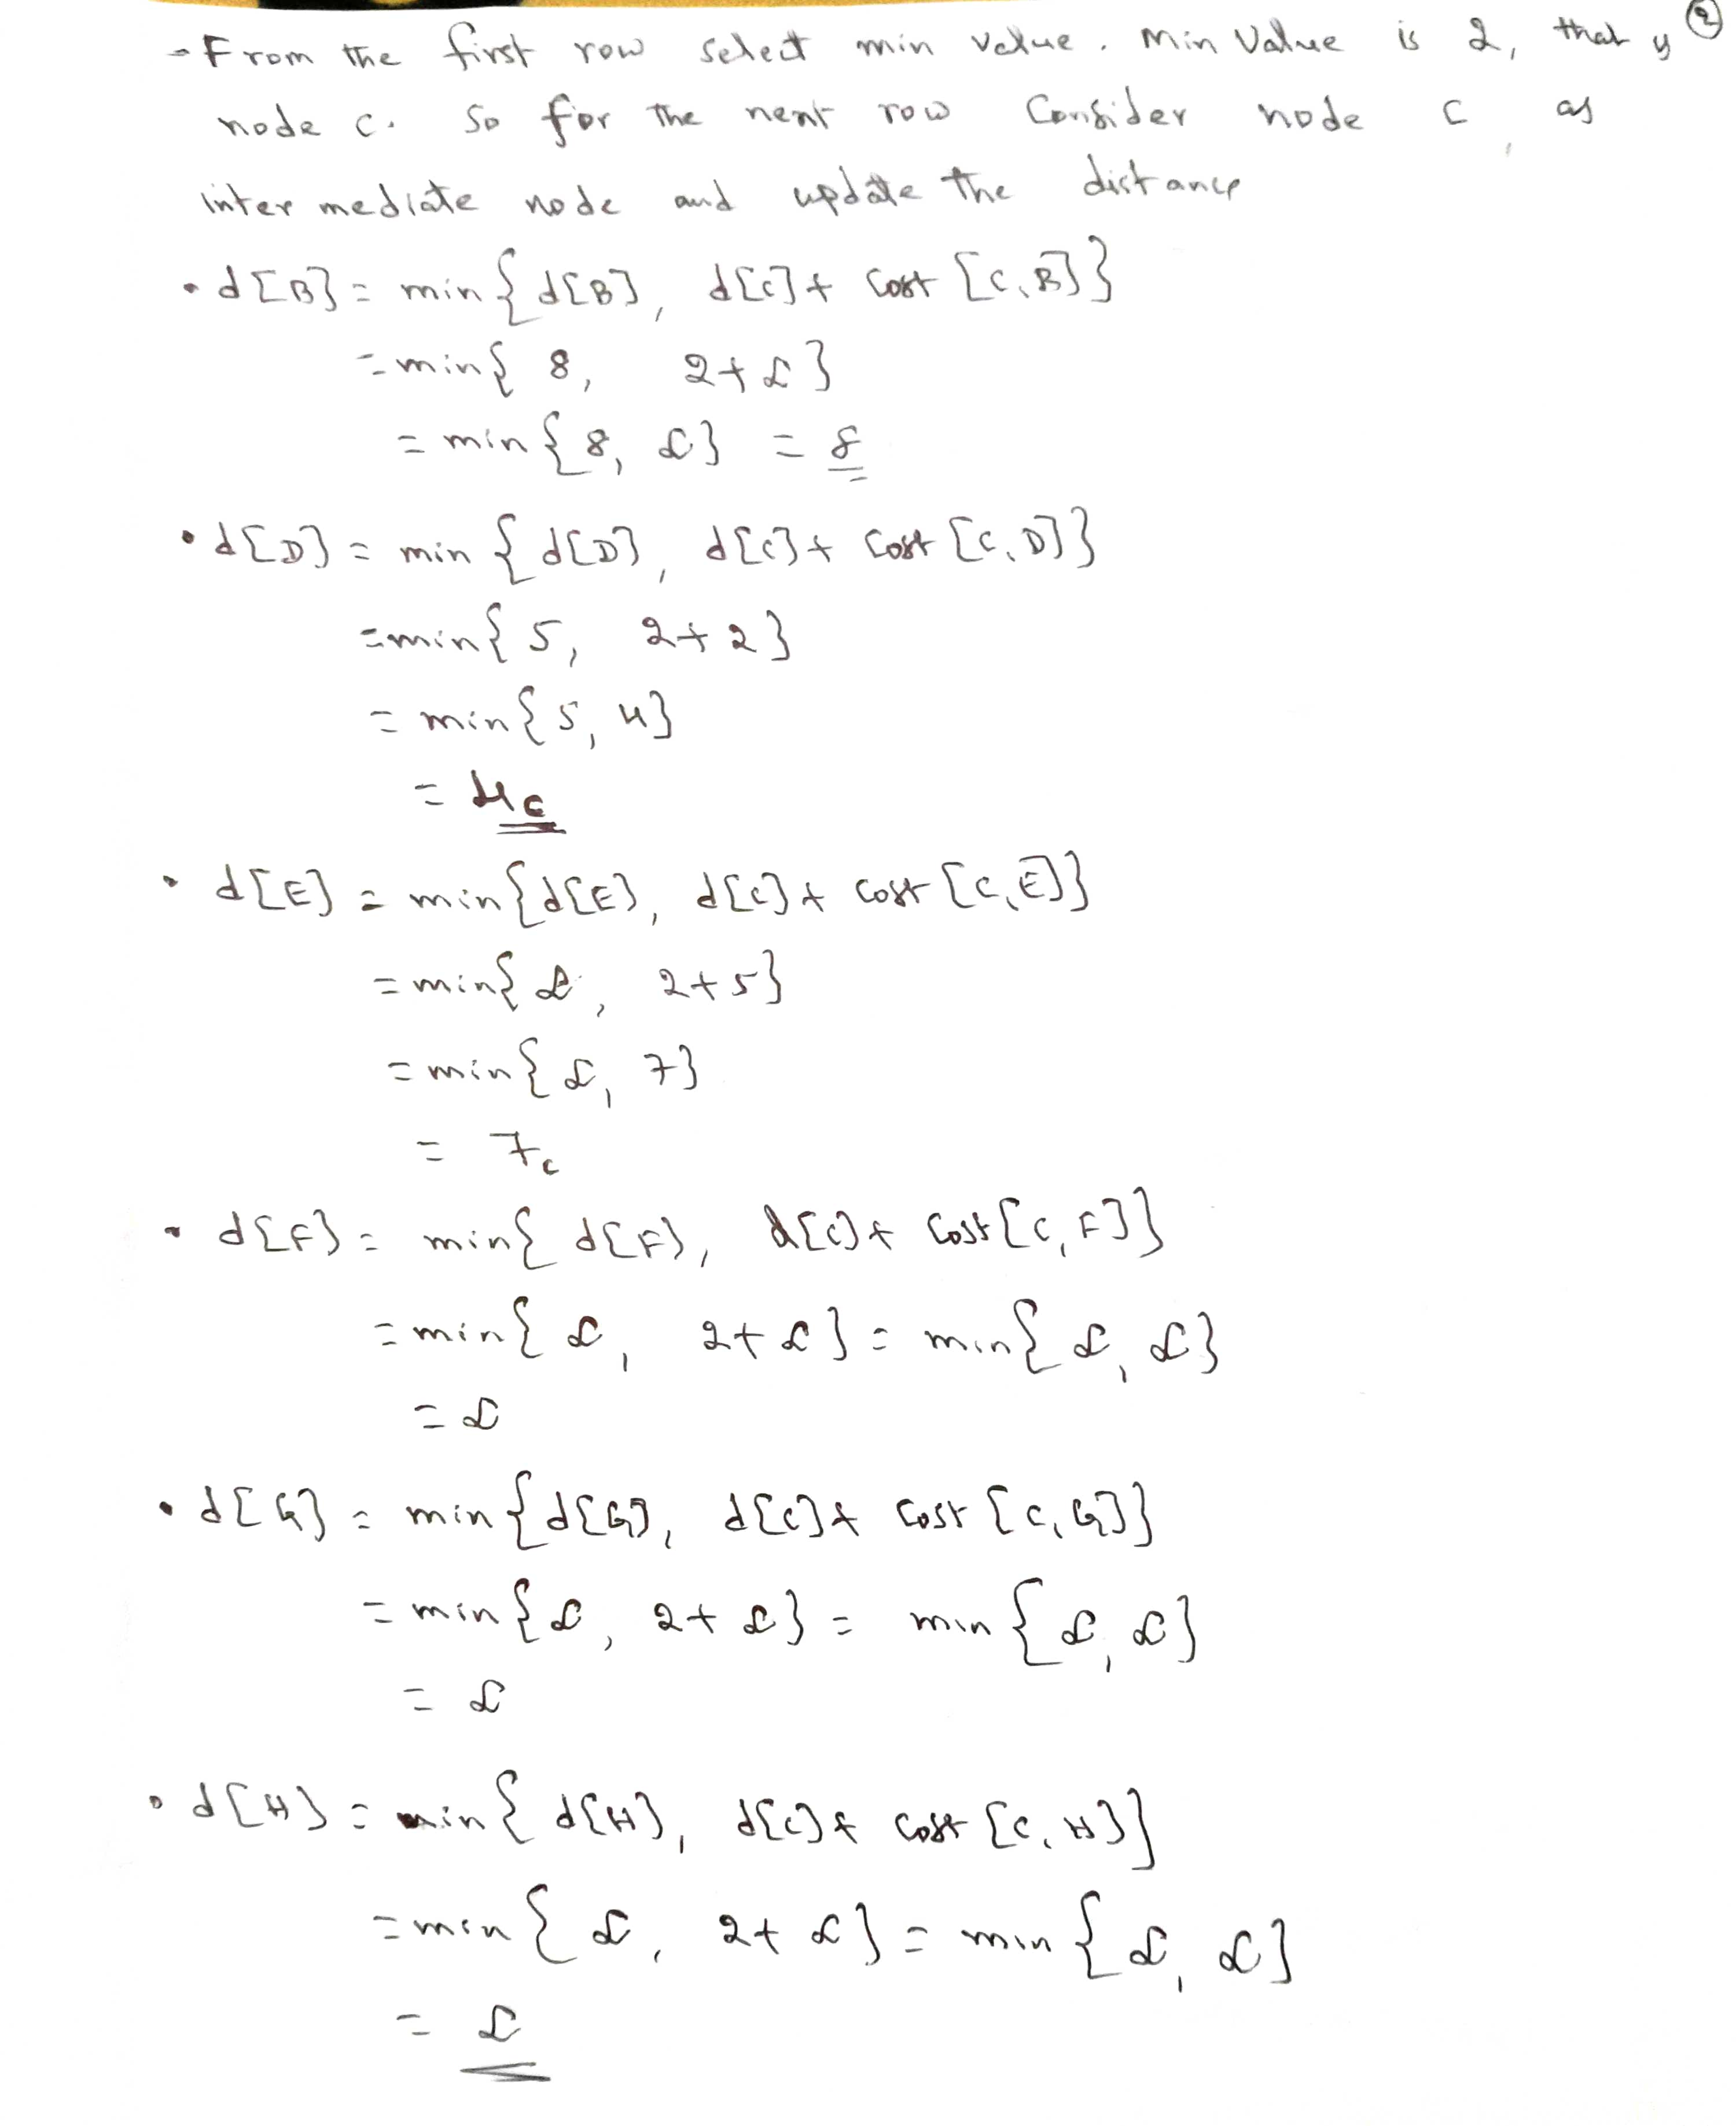 - From the first row select min value. Min Value is 2, that is ②
node C. So for the next row Consider node C as
intermediate node and update the distance
• d[B] = min{d[B], d[C]+ Cost [C,B]}
= min{ 8, 2+∞}
= min{8, ∞} = 8
• d[D] = min {d[D], d[C]+ Cost [C,D]}
= min{5, 2+2}
= min{5, 4}
= 4c
• d[E] = min{d[E], d[C]+ cost [C,E]}
= min{∞, 2+5}
= min{∞, 7}
= 7c
• d[F] = min{ d[F], d[C]+ Cost[C,F]}
= min{∞, 2+∞} = min{∞, ∞}
= ∞
• d[G] = min{d[G], d[C]+ Cost [C,G]}
= min{∞, 2+∞} = min{∞, ∞}
= ∞
• d[H] = min{ d[H], d[C]+ Cost [C,H]}
= min{∞, 2+∞} = min{∞, ∞}
= ∞